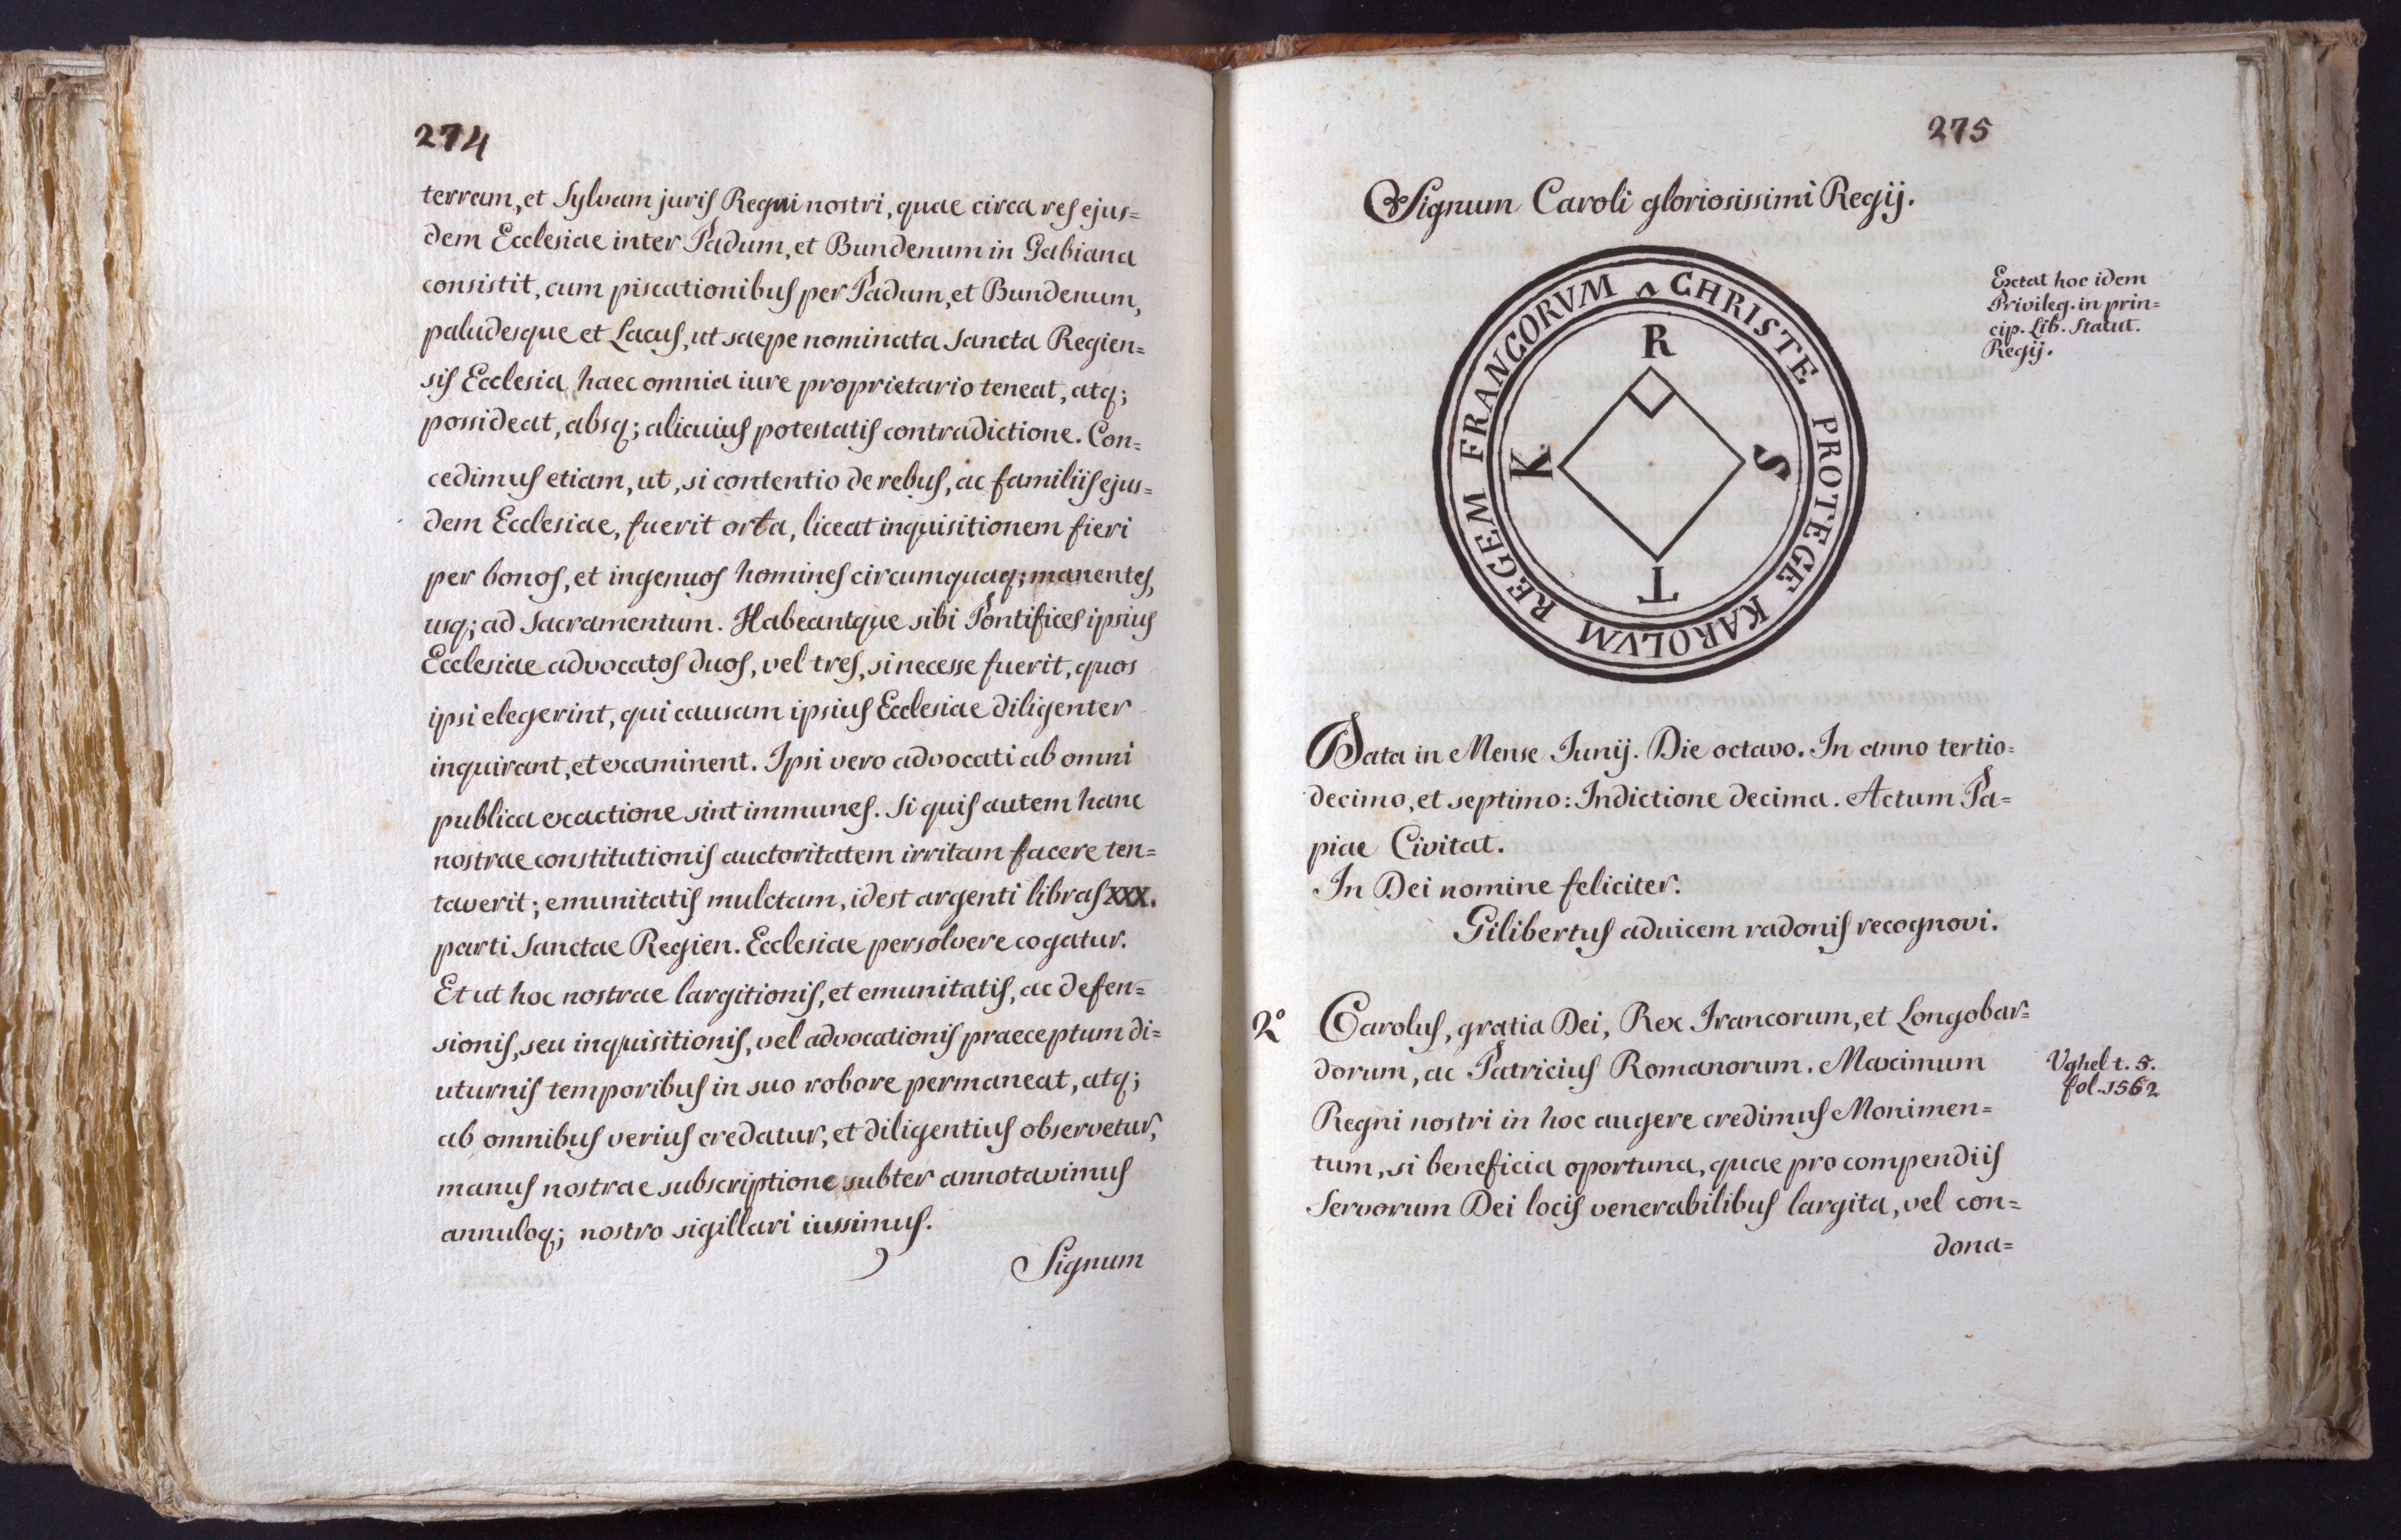 274
terram, et Sylvam juris Regni nostri, quae circa res ejus=
dem Ecclesiae inter Padum, et Bundenum in Gabiana
consistit, cum piscationibus per Padum, et Bundenum,
paludesque et Lacus, ut saepe nominata Sancta Regien=
sis Ecclesia haec omnia iure proprietario teneat, atq;
possideat, absq; alicuius potestatis contradictione. Con=
cedimus etiam, ut, si contentio de rebus, ac familiis ejus=
dem Ecclesiae, fuerit orta, liceat inquisitionem fieri
per bonos, et ingenuos homines circumquaq; manentes,
usq; ad Sacramentum. Habeantque sibi Pontifices ipsius
Ecclesiae advocatos duos, vel tres, si necesse fuerit, quos
ipsi elegerint, qui causam ipsius Ecclesiae diligenter
inquirant, et examinent. Ipsi vero advocati ab omni
publica exactione sint immunes. Si quis autem hanc
nostrae constitutionis auctoritatem irritam facere ten=
taverit; emunitatis mulctam, idest argenti libras XXX.
parti Sanctae Regien. Ecclesiae persolvere cogatur.
Et ut hoc nostrae largitionis, et emunitatis, ac defen=
sionis, seu inquisitionis, vel advocationis praeceptum di=
uturnis temporibus in suo robore permaneat, atq;
ab omnibus verius credatur, et diligentius observetur,
manus nostrae subscriptione subter annotavimus
annuloq; nostro sigillari iussimus.
Signum
275
Signum Caroli gloriosissimi Regij.
CHRISTE PROTEGE KAROLVM REGEM FRANCORVM
R
K.
S
T
Exctat hoc idem
Privileg. in prin=
cip. Lib. Statut.
Regij.
Data in Mense Junij. Die octavo. In anno tertio=
decimo, et septimo: Indictione decima. Actum Pa=
piae Civitat.
In Dei nomine feliciter.
Gilibertus aduicem radonis recognovi.
2º Carolus, gratia Dei, Rex Francorum, et Longobar=
dorum, ac Patricius Romanorum. Maximum
Regni nostri in hoc augere credimus Monimen=
tum, si beneficia oportuna, quae pro compendiis
Servorum Dei locis venerabilibus largita, vel con=
dona=
Vghel t. 5.
fol. 1562